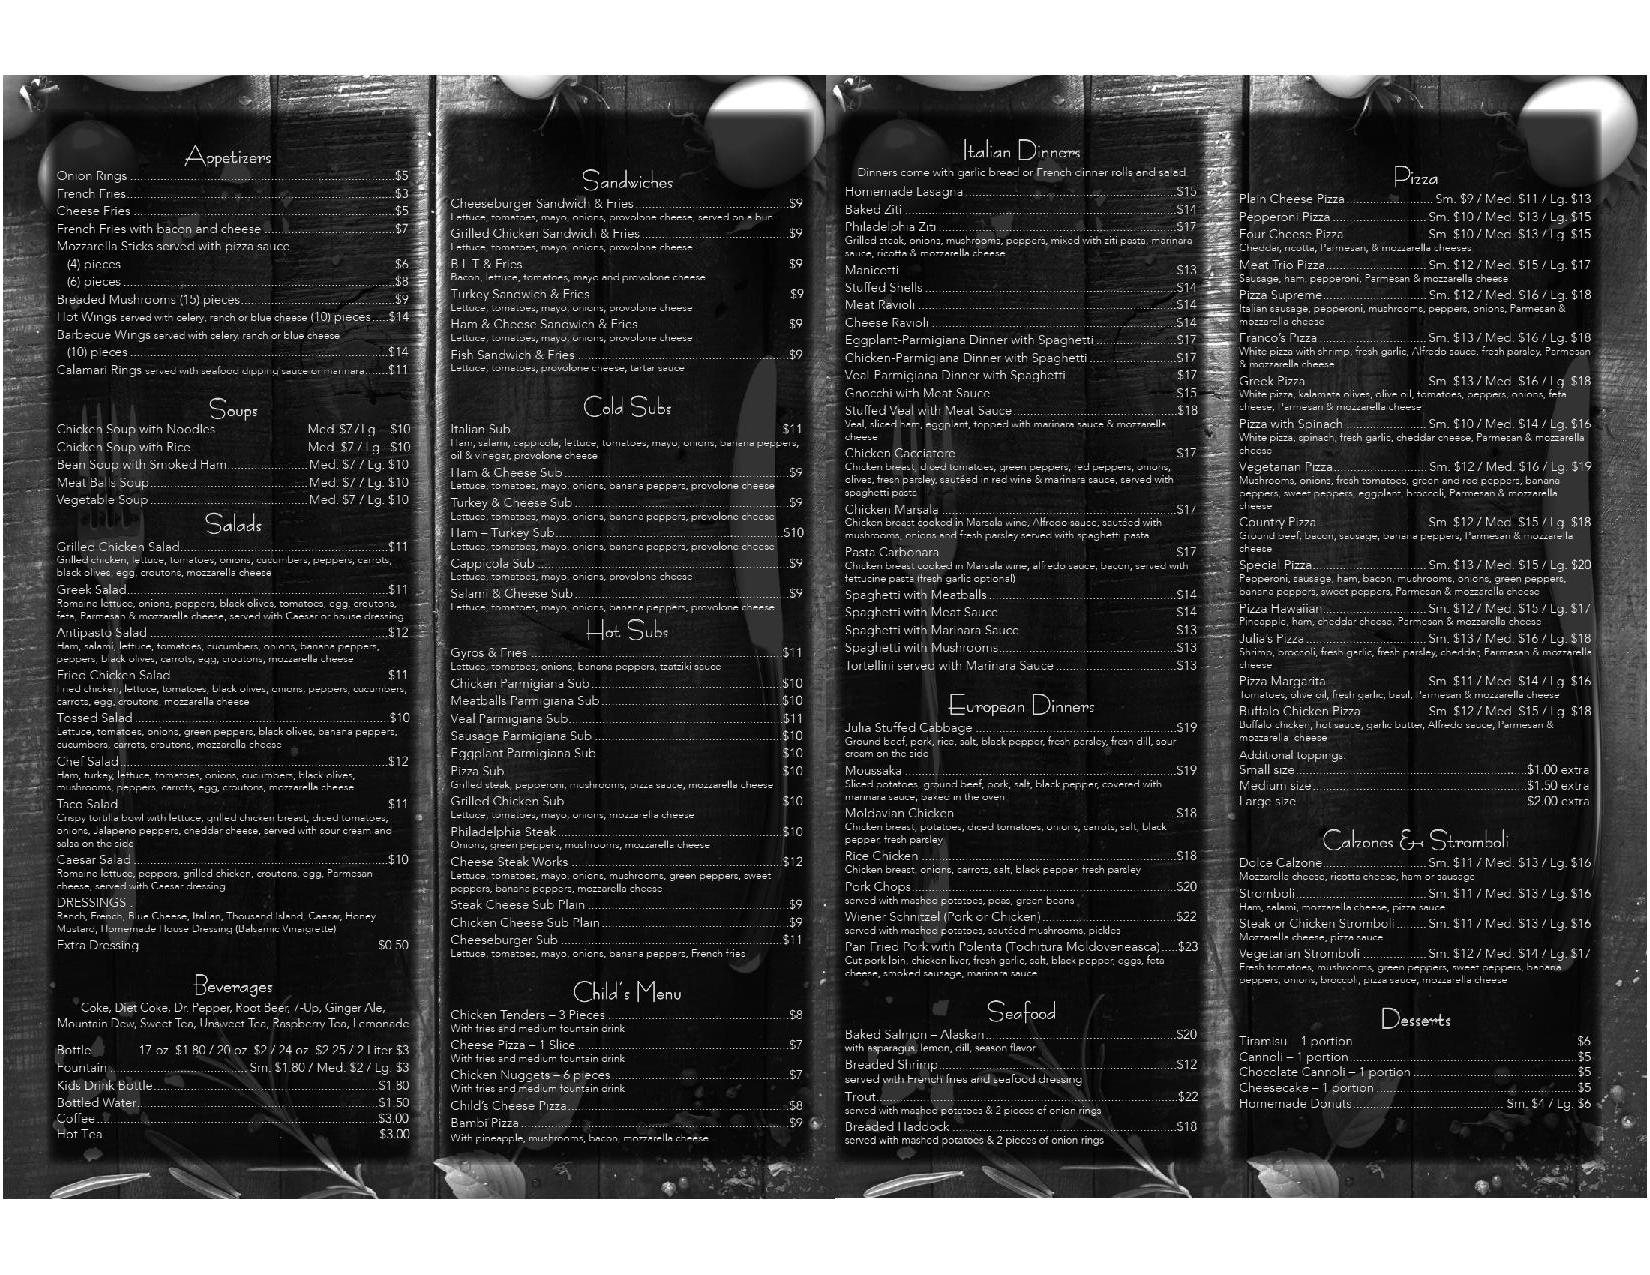 Appetizers
Onion Rings $5
French Fries $3
Cheese Fries $5
French Fries with bacon and cheese $7
Mozzarella Sticks served with pizza sauce
(4) pieces $6
(6) pieces $8
Breaded Mushrooms (15) pieces $9
Hot Wings served with celery, ranch or blue cheese (10) pieces $14
Barbecue Wings served with celery, ranch or blue cheese
(10) pieces $14
Calamari Rings served with seafood dipping sauce or marinara $11
Soups
Chicken Soup with Noodles Med. $7 / Lg. $10
Chicken Soup with Rice Med. $7 / Lg. $10
Bean Soup with Smoked Ham Med. $7 / Lg. $10
Meat Balls Soup Med. $7 / Lg. $10
Vegetable Soup Med. $7 / Lg. $10
Salads
Grilled Chicken Salad $11
Grilled chicken, lettuce, tomatoes, onions, cucumbers, peppers, carrots,
black olives, egg, croutons, mozzarella cheese
Greek Salad $11
Romaine lettuce, onions, peppers, black olives, tomatoes, egg, croutons,
feta, Parmesan & mozzarella cheese, served with Caesar or house dressing
Antipasto Salad $12
Ham, salami, lettuce, tomatoes, cucumbers, onions, banana peppers,
peppers, black olives, carrots, egg, croutons, mozzarella cheese
Fried Chicken Salad $11
Fried chicken, lettuce, tomatoes, black olives, onions, peppers, cucumbers,
carrots, egg, croutons, mozzarella cheese
Tossed Salad $10
Lettuce, tomatoes, onions, green peppers, black olives, banana peppers,
cucumbers, carrots, croutons, mozzarella cheese
Chef Salad $12
Ham, turkey, lettuce, tomatoes, onions, cucumbers, black olives,
mushrooms, peppers, carrots, egg, croutons, mozzarella cheese
Taco Salad $11
Crispy tortilla bowl with lettuce, grilled chicken breast, diced tomatoes,
onions, Jalapeno peppers, cheddar cheese, served with sour cream and
salsa on the side
Caesar Salad $10
Romaine lettuce, peppers, grilled chicken, croutons, egg, Parmesan
cheese, served with Caesar dressing
DRESSINGS :
Ranch, French, Blue Cheese, Italian, Thousand Island, Caesar, Honey
Mustard, Homemade House Dressing (Balsamic Vinaigrette)
Extra Dressing $0.50
Beverages
Coke, Diet Coke, Dr. Pepper, Root Beer, 7-Up, Ginger Ale,
Mountain Dew, Sweet Tea, Unsweet Tea, Raspberry Tea, Lemonade
Bottle 17 oz. $1.80 / 20 oz. $2 / 24 oz. $2.25 / 2 Liter $3
Fountain Sm. $1.80 / Med. $2 / Lg. $3
Kids Drink Bottle $1.80
Bottled Water $1.50
Coffee $3.00
Hot Tea $3.00
Sandwiches
Cheeseburger Sandwich & Fries $9
Lettuce, tomatoes, mayo, onions, provolone cheese, served on a bun
Grilled Chicken Sandwich & Fries $9
Lettuce, tomatoes, mayo, onions, provolone cheese
B.L.T & Fries $9
Bacon, lettuce, tomatoes, mayo and provolone cheese
Turkey Sandwich & Fries $9
Lettuce, tomatoes, mayo, onions, provolone cheese
Ham & Cheese Sandwich & Fries $9
Lettuce, tomatoes, mayo, onions, provolone cheese
Fish Sandwich & Fries $9
Lettuce, tomatoes, provolone cheese, tartar sauce
Cold Subs
Italian Sub $11
Ham, salami, cappicola, lettuce, tomatoes, mayo, onions, banana peppers,
oil & vinegar, provolone cheese
Ham & Cheese Sub $9
Lettuce, tomatoes, mayo, onions, banana peppers, provolone cheese
Turkey & Cheese Sub $9
Lettuce, tomatoes, mayo, onions, banana peppers, provolone cheese
Ham – Turkey Sub $10
Lettuce, tomatoes, mayo, onions, banana peppers, provolone cheese
Cappicola Sub $9
Lettuce, tomatoes, mayo, onions, provolone cheese
Salami & Cheese Sub $9
Lettuce, tomatoes, mayo, onions, banana peppers, provolone cheese
Hot Subs
Gyros & Fries $11
Lettuce, tomatoes, onions, banana peppers, tzatziki sauce
Chicken Parmigiana Sub $10
Meatballs Parmigiana Sub $10
Veal Parmigiana Sub $11
Sausage Parmigiana Sub $10
Eggplant Parmigiana Sub $10
Pizza Sub $10
Grilled steak, pepperoni, mushrooms, pizza sauce, mozzarella cheese
Grilled Chicken Sub $10
Lettuce, tomatoes, mayo, onions, mozzarella cheese
Philadelphia Steak $10
Onions, green peppers, mushrooms, mozzarella cheese
Cheese Steak Works $12
Lettuce, tomatoes, mayo, onions, mushrooms, green peppers, sweet
peppers, banana peppers, mozzarella cheese
Steak Cheese Sub Plain $9
Chicken Cheese Sub Plain $9
Cheeseburger Sub $11
Lettuce, tomatoes, mayo, onions, banana peppers, French fries
Child's Menu
Chicken Tenders – 3 Pieces $8
With fries and medium fountain drink
Cheese Pizza – 1 Slice $7
With fries and medium fountain drink
Chicken Nuggets – 6 pieces $7
With fries and medium fountain drink
Child's Cheese Pizza $8
Bambi Pizza $9
With pineapple, mushrooms, bacon, mozzarella cheese
Italian Dinners
Dinners come with garlic bread or French dinner rolls and salad.
Homemade Lasagna $15
Baked Ziti $14
Philadelphia Ziti $17
Grilled steak, onions, mushrooms, peppers, mixed with ziti pasta, marinara
sauce, ricotta & mozzarella cheese
Manicotti $13
Stuffed Shells $14
Meat Ravioli $14
Cheese Ravioli $14
Eggplant-Parmigiana Dinner with Spaghetti $17
Chicken-Parmigiana Dinner with Spaghetti $17
Veal-Parmigiana Dinner with Spaghetti $17
Gnocchi with Meat Sauce $15
Stuffed Veal with Meat Sauce $18
Veal, sliced ham, eggplant, topped with marinara sauce & mozzarella
cheese
Chicken Cacciatore $17
Chicken breast, diced tomatoes, green peppers, red peppers, onions,
olives, fresh parsley, sautéed in red wine & marinara sauce, served with
spaghetti pasta
Chicken Marsala $17
Chicken breast cooked in Marsala wine, Alfredo sauce, sautéed with
mushrooms, onions and fresh parsley served with spaghetti pasta
Pasta Carbonara $17
Chicken breast cooked in Marsala wine, alfredo sauce, bacon, served with
fettucine pasta (fresh garlic optional)
Spaghetti with Meatballs $14
Spaghetti with Meat Sauce $14
Spaghetti with Marinara Sauce $13
Spaghetti with Mushrooms $13
Tortellini served with Marinara Sauce $13
European Dinners
Julia Stuffed Cabbage $19
Ground beef, pork, rice, salt, black pepper, fresh parsley, fresh dill, sour
cream on the side
Moussaka $19
Sliced potatoes, ground beef, pork, salt, black pepper, covered with
marinara sauce, baked in the oven
Moldavian Chicken $18
Chicken breast, potatoes, diced tomatoes, onions, carrots, salt, black
pepper, fresh parsley
Rice Chicken $18
Chicken breast, onions, carrots, salt, black pepper, fresh parsley
Pork Chops $20
served with mashed potatoes, peas, green beans
Wiener Schnitzel (Pork or Chicken) $22
served with mashed potatoes, sautéed mushrooms, pickles
Pan Fried Pork with Polenta (Tochitura Moldoveneasca) $23
Cut pork loin, chicken liver, fresh garlic, salt, black pepper, eggs, feta
cheese, smoked sausage, marinara sauce
Seafood
Baked Salmon – Alaskan $20
with asparagus, lemon, dill, season flavor
Breaded Shrimp $12
served with French fries and seafood dressing
Trout $22
served with mashed potatoes & 2 pieces of onion rings
Breaded Haddock $18
served with mashed potatoes & 2 pieces of onion rings
Pizza
Plain Cheese Pizza Sm. $9 / Med. $11 / Lg. $13
Pepperoni Pizza Sm. $10 / Med. $13 / Lg. $15
Four Cheese Pizza Sm. $10 / Med. $13 / Lg. $15
Cheddar, ricotta, Parmesan, & mozzarella cheeses
Meat Trio Pizza Sm. $12 / Med. $15 / Lg. $17
Sausage, ham, pepperoni, Parmesan & mozzarella cheese
Pizza Supreme Sm. $12 / Med. $16 / Lg. $18
Italian sausage, pepperoni, mushrooms, peppers, onions, Parmesan &
mozzarella cheese
Franco's Pizza Sm. $13 / Med. $16 / Lg. $18
White pizza with shrimp, fresh garlic, Alfredo sauce, fresh parsley, Parmesan
& mozzarella cheese
Greek Pizza Sm. $13 / Med. $16 / Lg. $18
White pizza, kalamata olives, olive oil, tomatoes, peppers, onions, feta
cheese, Parmesan & mozzarella cheese
Pizza with Spinach Sm. $10 / Med. $14 / Lg. $16
White pizza, spinach, fresh garlic, cheddar cheese, Parmesan & mozzarella
cheese
Vegetarian Pizza Sm. $12 / Med. $16 / Lg. $19
Mushrooms, onions, fresh tomatoes, green and red peppers, banana
peppers, sweet peppers, eggplant, broccoli, Parmesan & mozzarella
cheese
Country Pizza Sm. $12 / Med. $15 / Lg. $18
Ground beef, bacon, sausage, banana peppers, Parmesan & mozzarella
cheese
Special Pizza Sm. $13 / Med. $15 / Lg. $20
Pepperoni, sausage, ham, bacon, mushrooms, onions, green peppers,
banana peppers, sweet peppers, Parmesan & mozzarella cheese
Pizza Hawaiian Sm. $12 / Med. $15 / Lg. $17
Pineapple, ham, cheddar cheese, Parmesan & mozzarella cheese
Julia's Pizza Sm. $13 / Med. $16 / Lg. $18
Shrimp, broccoli, fresh garlic, fresh parsley, cheddar, Parmesan & mozzarella
cheese
Pizza Margarita Sm. $11 / Med. $14 / Lg. $16
Tomatoes, olive oil, fresh garlic, basil, Parmesan & mozzarella cheese
Buffalo Chicken Pizza Sm. $12 / Med. $15 / Lg. $18
Buffalo chicken, hot sauce, garlic butter, Alfredo sauce, Parmesan &
mozzarella cheese
Additional toppings:
Small size $1.00 extra
Medium size $1.50 extra
Large size $2.00 extra
Calzones & Stromboli
Dolce Calzone Sm. $11 / Med. $13 / Lg. $16
Mozzarella cheese, ricotta cheese, ham or sausage
Stromboli Sm. $11 / Med. $13 / Lg. $16
Ham, salami, mozzarella cheese, pizza sauce
Steak or Chicken Stromboli Sm. $11 / Med. $13 / Lg. $16
Mozzarella cheese, pizza sauce
Vegetarian Stromboli Sm. $12 / Med. $14 / Lg. $17
Fresh tomatoes, mushrooms, green peppers, sweet peppers, banana
peppers, onions, broccoli, pizza sauce, mozzarella cheese
Desserts
Tiramisu – 1 portion $6
Cannoli – 1 portion $5
Chocolate Cannoli – 1 portion $5
Cheesecake – 1 portion $5
Homemade Donuts Sm. $4 / Lg. $6